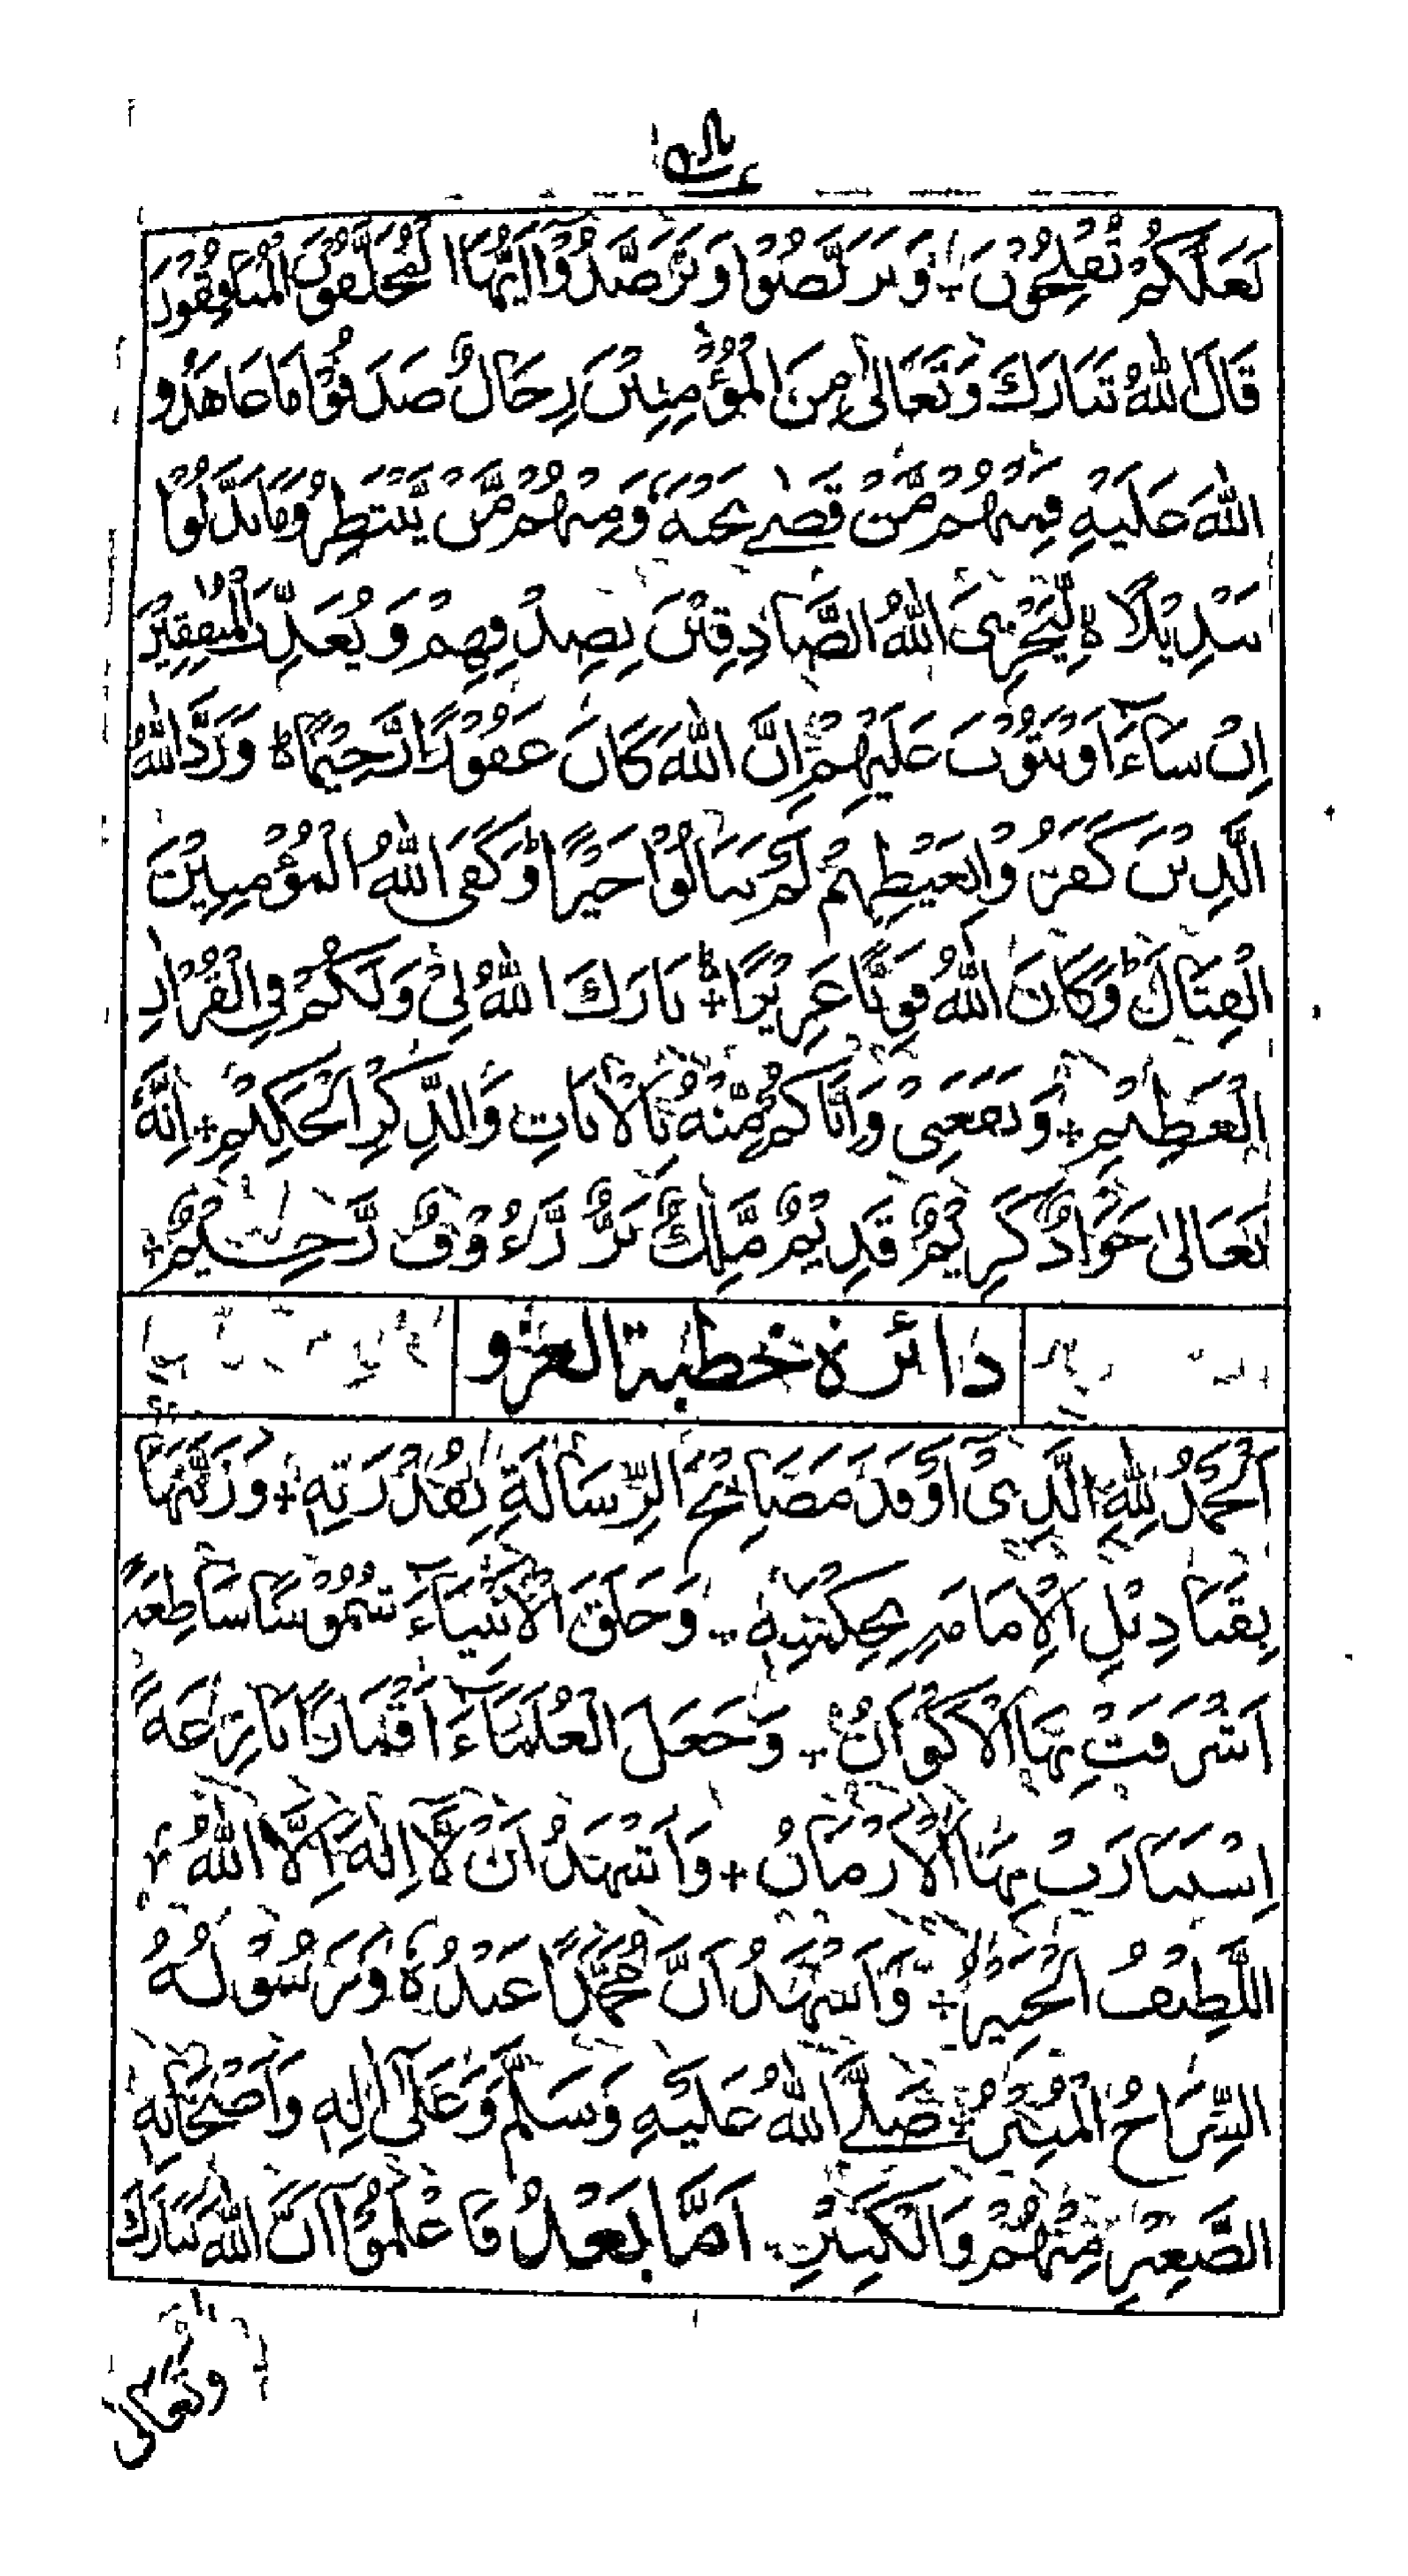 لَعَلَّكُمْ تُفْلِحُوْنَ + وَتَرَبَّصُوْا وَتَرَصَّدُوْا اَيُّهَا الْمُخَلَّفُوْنَ الْمُنَافِقُوْنَ
قَالَ اللهُ تَبَارَكَ وَتَعَالٰى مِنَ الْمُؤْمِنِيْنَ رِجَالٌ صَدَقُوْا مَا عَاهَدُو
اللهَ عَلَيْهِ فَمِنْهُمْ مَّنْ قَضٰے نَحْبَهٗ وَمِنْهُمْ مَّنْ يَّنْتَظِرُ وَمَا بَدَّلُوْا
تَبْدِيْلًا ۝ لِّيَجْزِىَ اللهُ الصَّادِقِيْنَ بِصِدْقِهِمْ وَيُعَذِّبَ الْمُنٰفِقِيْنَ
اِنْ شَآءَ اَوْ يَتُوْبَ عَلَيْهِمْ اِنَّ اللهَ كَانَ غَفُوْرًا رَّحِيْمًا ۝ وَرَدَّ اللهُ
الَّذِيْنَ كَفَرُوْا بِغَيْظِهِمْ لَمْ يَنَالُوْا خَيْرًا ؕ وَكَفَى اللهُ الْمُؤْمِنِيْنَ
الْقِتَالَ ؕ وَكَانَ اللهُ قَوِيًّا عَزِيْزًا + بَارَكَ اللهُ لِىْ وَلَكُمْ فِى الْقُرْاٰنِ
الْعَظِيْمِ + وَنَفَعَنِىْ وَاِيَّاكُمْ مِّنْهُ بِالْاٰيَاتِ وَالذِّكْرِ الْحَكِيْمِ + اِنَّهٗ
تَعَالٰى جَوَادٌ كَرِيْمٌ قَدِيْمٌ مَّلِكٌ بَرٌّ رَّءُوْفٌ رَّحِيْمٌ +
دائرة خطبة الغزو
اَلْحَمْدُ لِلّٰهِ الَّذِىْ اَوْقَدَ مَصَابِيْحَ الرِّسَالَةِ بِقُدْرَتِهٖ + وَزَيَّنَهَا
بِقَنَادِيْلِ الْاِمَامَةِ بِحِكْمَتِهٖ + وَخَلَقَ الْاَنْبِيَآءَ شُمُوْسًا سَاطِعَةً
اَشْرَقَتْ بِهَا الْاَكْوَانُ + وَجَعَلَ الْعُلَمَآءَ اَقْمَارًا بَازِغَةً
اِسْتَنَارَتْ بِهَا الْاَزْمَانُ + وَاَشْهَدُ اَنْ لَّا اِلٰهَ اِلَّا اللهُ
اللَّطِيْفُ الْخَبِيْرُ + وَاَشْهَدُ اَنَّ مُحَمَّدًا عَبْدُهٗ وَرَسُوْلُهُ
السِّرَاجُ الْمُنِيْرُ + صَلَّے اللهُ عَلَيْهِ وَسَلَّمَ وَعَلٰى اٰلِهٖ وَاَصْحَابِهٖ
الصَّغِيْرِ مِنْهُمْ وَالْكَبِيْرِ + اَمَّا بَعْدُ فَاعْلَمُوْا اَنَّ اللهَ تَبَارَكَ
وتعالى